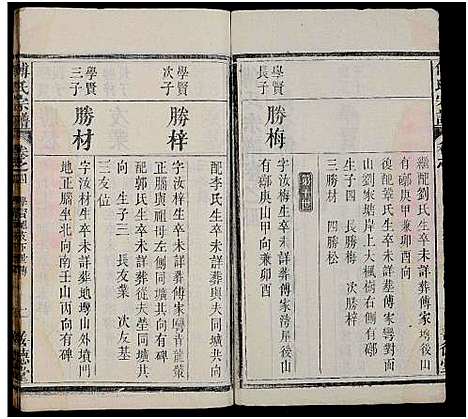 繼配劉氏生卒未詳葬傅家塆後山
有鄰庚甲兼卯酉向
配龔氏生卒未詳葬傅家彎對面
山劉家塘岸上大楓樹右側有鄰
子四 長勝梅 次勝梓
三勝材 四勝松
學賢
長子
勝梅
字汝梅生卒未詳葬傅家灣屋後山
有鄰庚山甲向兼卯酉
配李氏生卒未詳葬與夫同壙共
學賢
次子
勝梓
字汝梓生卒未詳葬傅家彎青龍嘴
正腦與顯母左側同壙共
配郭氏生卒未詳葬從夫塋同壙共
向 生子三 長友業 次友基
三友位
學賢
三子
勝材
字汝材生卒未詳葬地塆山外墳門
正腦坐北向南壬山丙向有碑
傅氏宗譜
卷之四